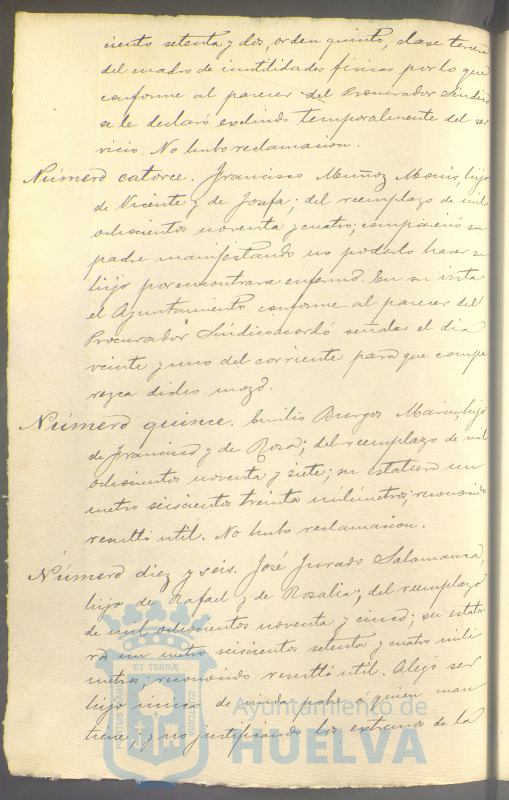 ciento setenta y dos, orden quinto, clase tercera
del cuadro de inutilidades físicas por lo que
conforme al parecer del Procurador Síndico
se le declaró excluido temporalmente del ser
vicio. No hubo reclamacion.
Número catorce. Francisco Muñoz hijo
de Vicente y de Josefa; del reemplazo de mil
ochocientos noventa y cuatro; compareció su
padre manifestando no poderlo hacer su
hijo por encontrarse enfermo. En su vista
el Ayuntamiento conforme al parecer del
Procurador Síndico acordó señalar el dia
veinte y uno del corriente para que compa
rezca dicho mozo.
Número quince. Emilio Burgos Marin, hijo
de Francisco y de Rosa; del reemplazo de mil
ochocientos noventa y siete; su estatura un
metro seiscientos treinta milímetros; reconocido
resultó util. No hubo reclamacion.
Número diez y seis. José Jurado Salamanca,
hijo de Rafael y de Rosalia; del reemplazo
de mil ochocientos noventa y cinco; su estatu
ra un metro seiscientos setenta y cuatro milí
metros; reconocido resultó util. Alegó ser
hijo único de viuda pobre a quien man
tiene; y no justificando los extremos de la
PORTUS MARIS ET TERRÆ CUSTODIA
Ayuntamiento de
HUELVA